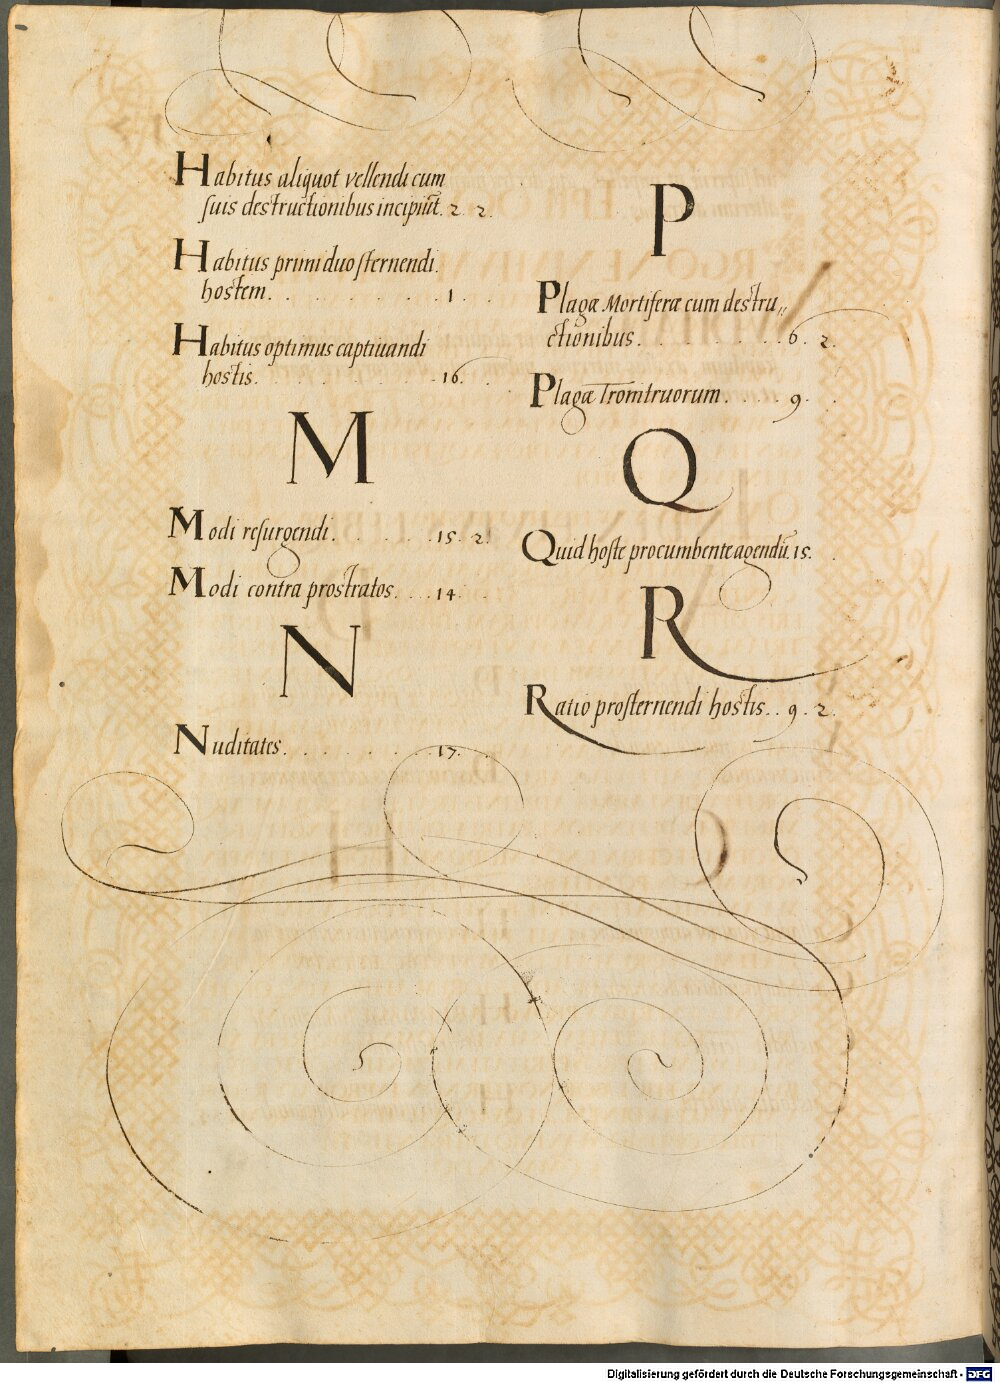 Habitus aliquot vellendi cum
suis destructionibus incipiūt. 2. 2.
Habitus primi duo sternendi
hostem. . . . . . . . . . . 1 . .
Habitus optimus captiuandi
hostis. . . . . . . . . . . 16. .
M
Modi resurgendi. . . . . . . 15. 2.
Modi contra prostratos. . . . 14. .
N
Nuditates. . . . . . . . . 17. .
P
Plagæ Mortiferæ cum destru„
ctionibus. . . . . . . . . 6. 2.
Plagæ Tronitruorum. . . . . 9. .
Q
Quid hoste procumbente agendū. 15. .
R
Ratio prosternendi hostis. . 9. 2.
Digitalisierung gefördert durch die Deutsche Forschungsgemeinschaft - DFG